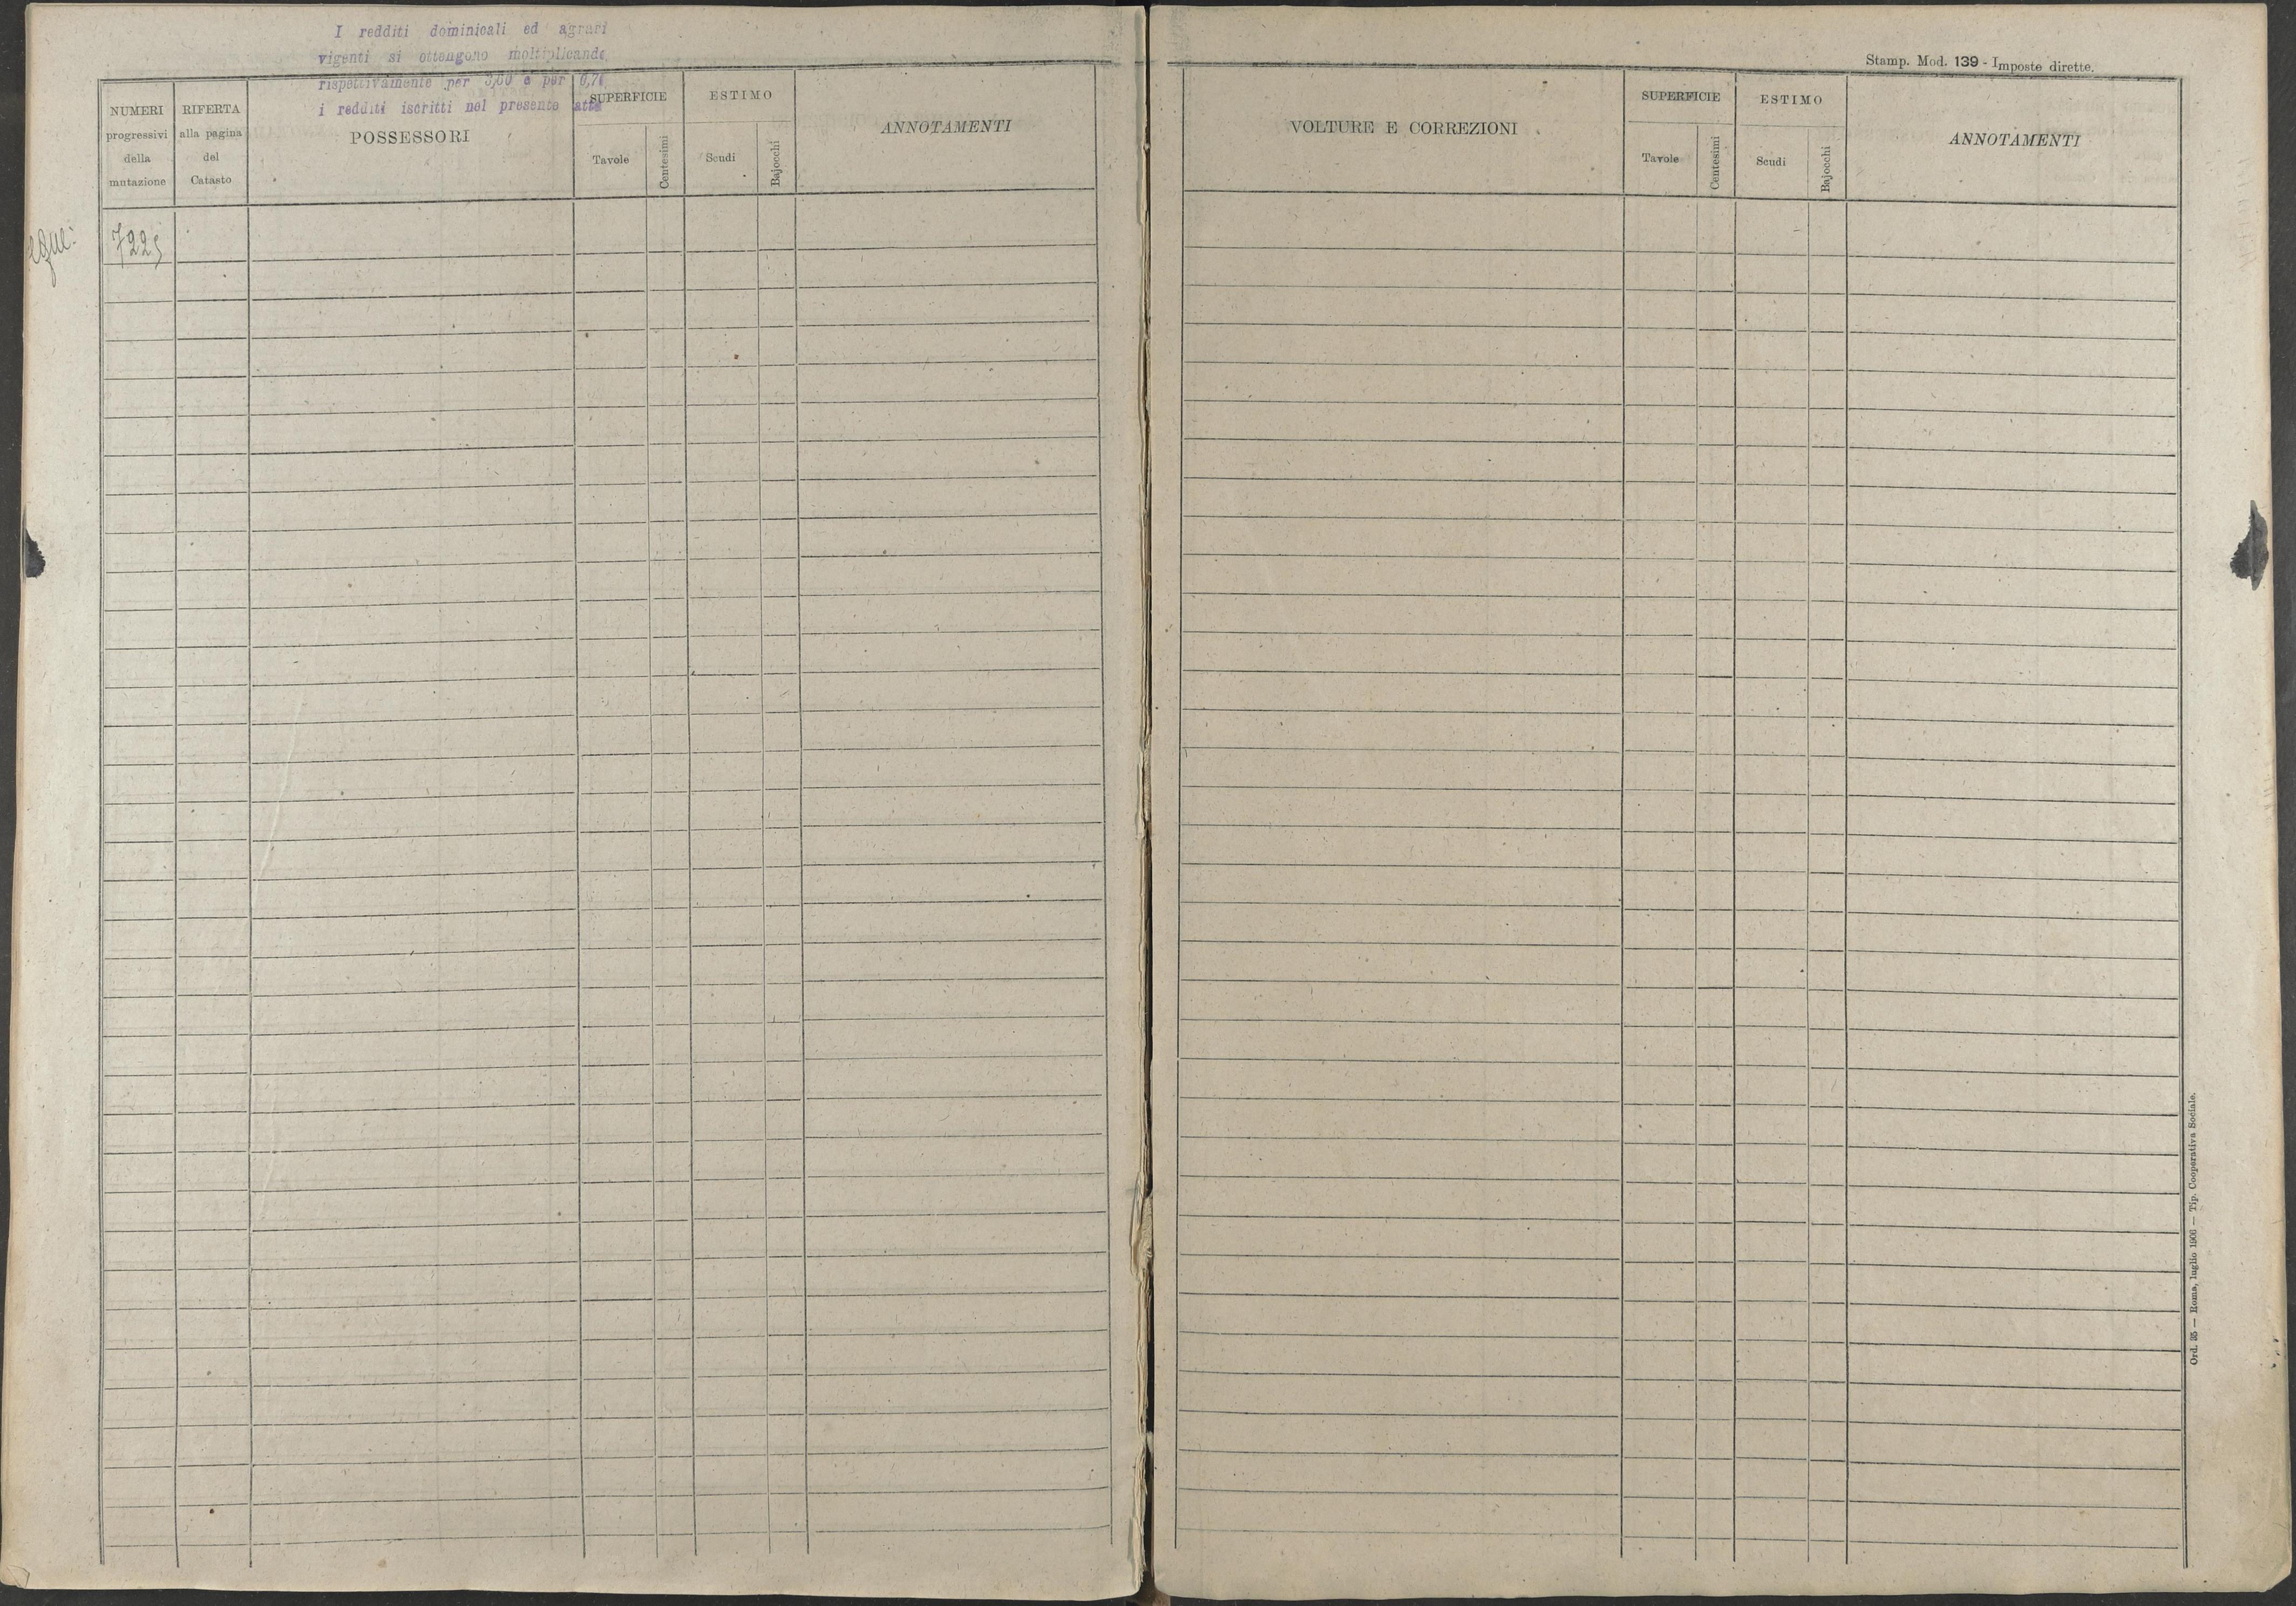 I redditi dominicali ed agrari
vigenti si ottengono moltiplicando
rispettivamente per 3,60 e per 6,70
i redditi iscritti nel presente atto
NUMERI
progressivi
della
mutazione
RIFERTA
alla pagina
del
Catasto
POSSESSORI
SUPERFICIE
Tavole
Centesimi
ESTIMO
Scudi
Bajocchi
ANNOTAMENTI
7225
Stamp. Mod. 139 - Imposte dirette.
VOLTURE E CORREZIONI
SUPERFICIE
Tavole
Centesimi
ESTIMO
Scudi
Bajocchi
ANNOTAMENTI
Ord. 35 — Roma, luglio 1906 — Tip. Cooperativa Sociale.